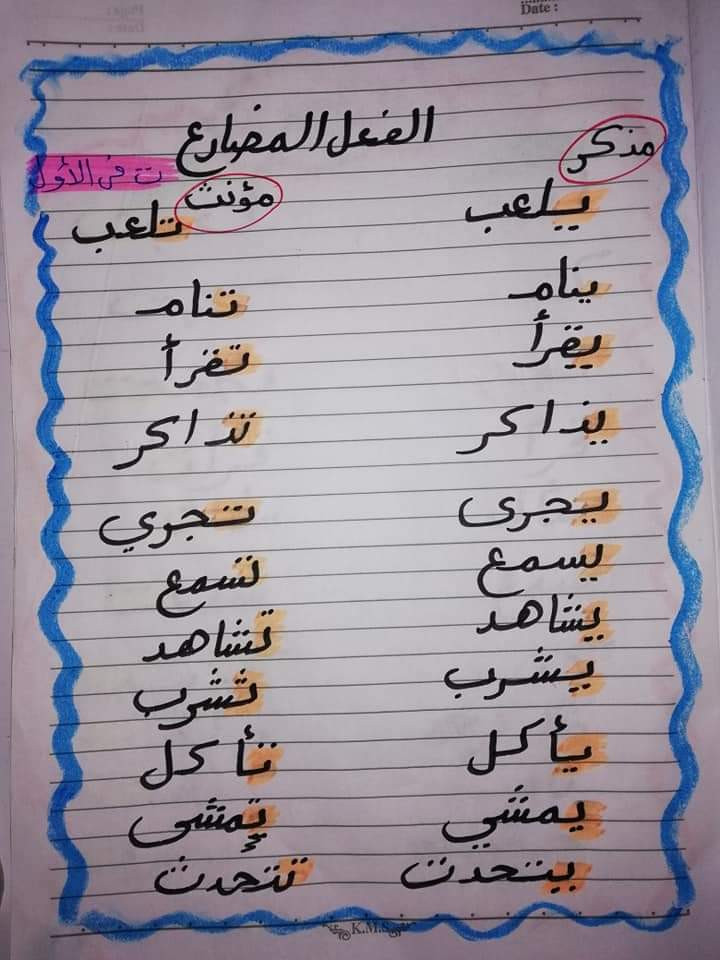 Date :
الفعل المضارع
مذكر
ت فى الأول
مؤنث
يلعب تلعب
ينام تنام
يقرأ تقرأ
يذاكر تذاكر
يجرى تجري
يسمع تسمع
يشاهد تشاهد
يشرب تشرب
يأكل تأكل
يمشي تمشى
يتحدث تتحدث
K.M.S